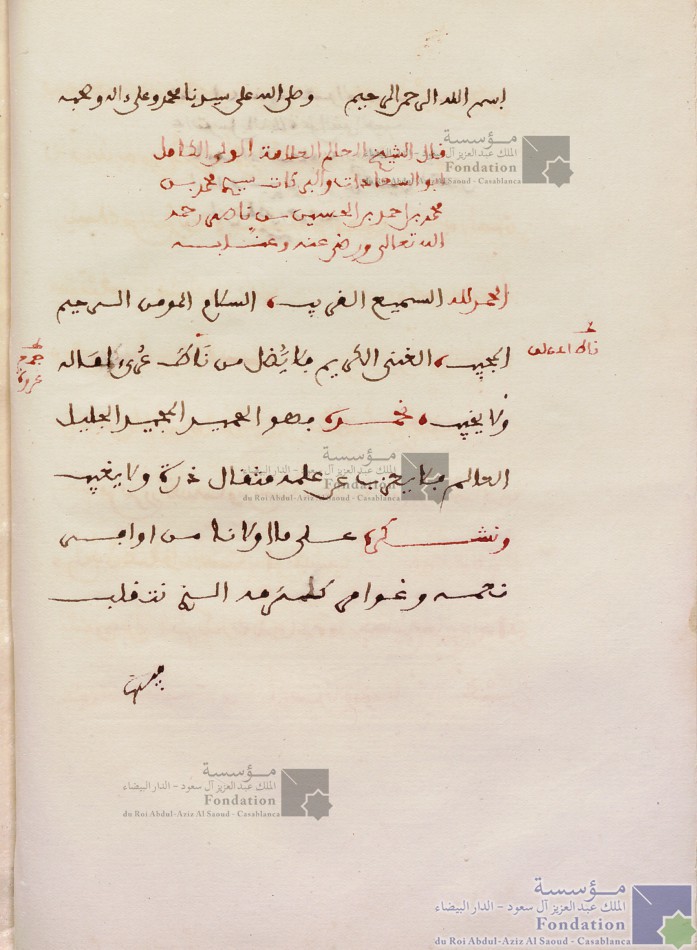 بسم الله الرحمن الرحيم وصلى الله على سيدنا محمد وعلى ءاله وصحبه
قال الشيخ العالم العلامة الولي الكامل
ابو السعادات والبركات سيدي محمد بن
محمد بن احمد بن الحسين بن ناصر رحمه
الله تعالى ورضي عنه وعنا به
الحمد لله السميع القريب، السلام المومن الرحيم
المجيب، الغني الكريم فلا يُضل من نَاطَ عُرىٰ ءاماله
ولا يخيب، نحمده وهو الحميد المجيد الجليل
العالم فلا يعزب عن علمه مثقال ذرة ولا يغيب
ونشكره على ما اولانا من اوانس
نعمه وغوامر كلمته التي نتقلب
فيها
ناط
جمع
عروة
مؤسسة
الملك عبد العزيز آل سعود - الدار البيضاء
Fondation
du Roi Abdul-Aziz Al Saoud - Casablanca
مؤسسة
الملك عبد العزيز آل سعود - الدار البيضاء
Fondation
du Roi Abdul-Aziz Al Saoud - Casablanca
مؤسسة
الملك عبد العزيز آل سعود - الدار البيضاء
Fondation
du Roi Abdul-Aziz Al Saoud - Casablanca
مؤسسة
الملك عبد العزيز آل سعود - الدار البيضاء
Fondation
du Roi Abdul-Aziz Al Saoud - Casablanca